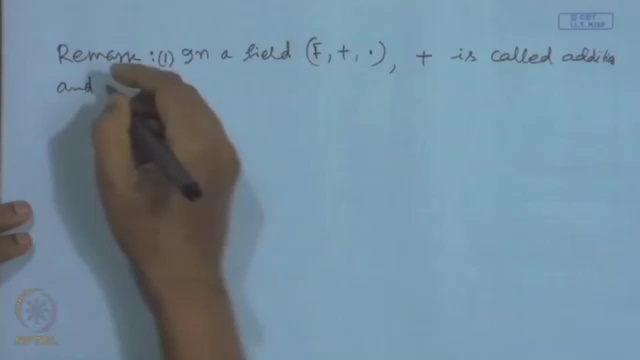 © CET
I.I.T. KGP
Remark : (1) In a field (F, +, ·), + is called additio
and
NPTEL